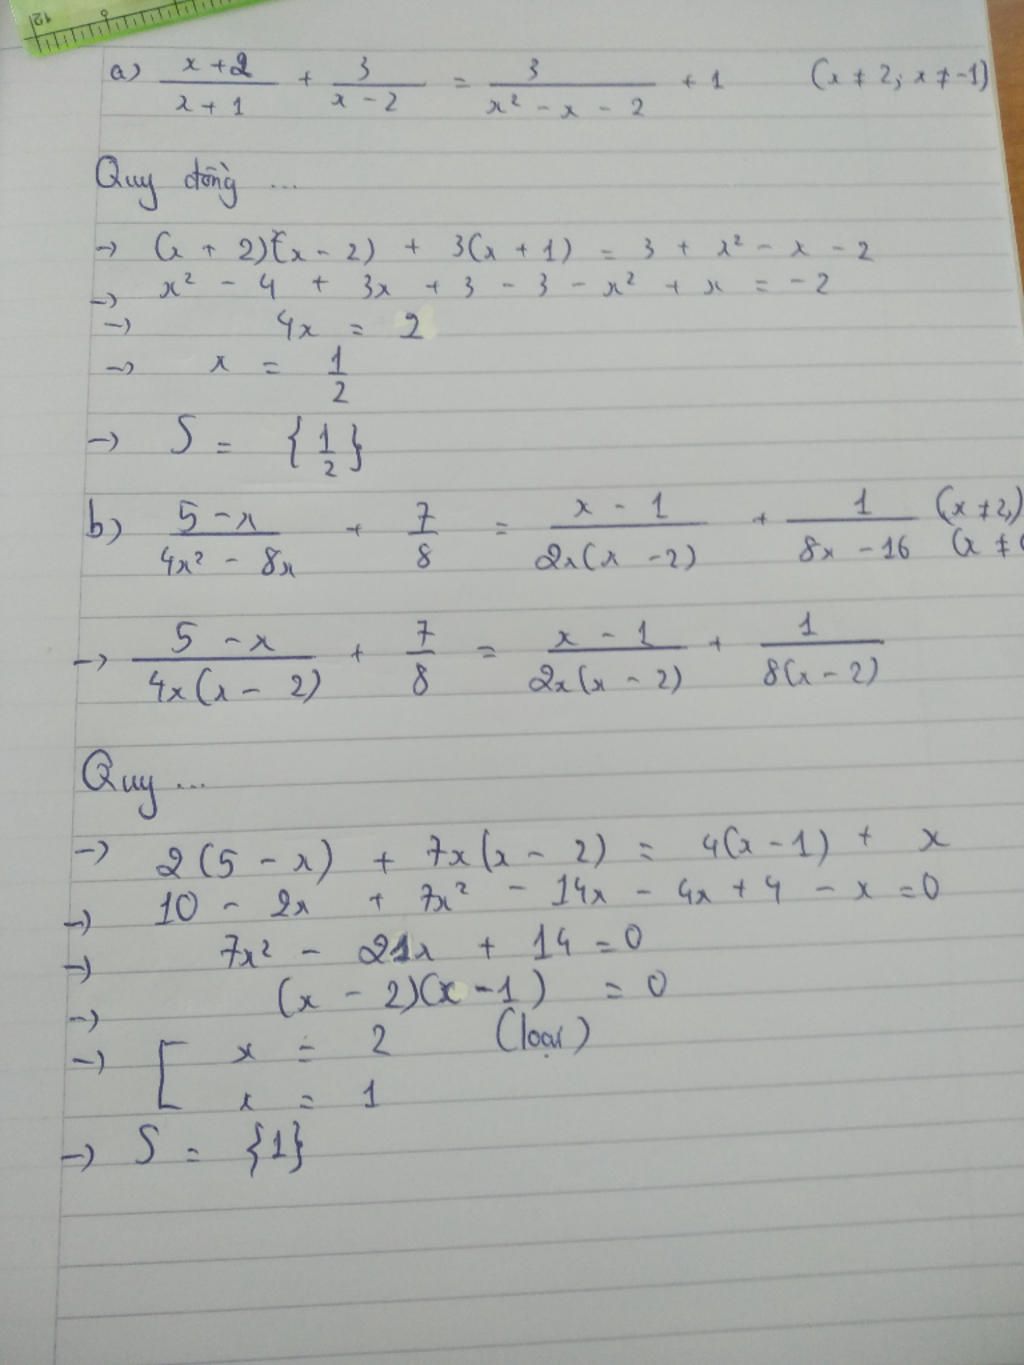 a) \frac{x+2}{x+1} + \frac{3}{x-2} = \frac{3}{x² - x - 2} + 1 (x ≠ 2; x ≠ -1)
Quy đồng ...
→ (x + 2)(x - 2) + 3(x + 1) = 3 + x² - x - 2
→ x² - 4 + 3x + 3 - 3 - x² + x = -2
→ 4x = 2
→ x = \frac{1}{2}
→ S = {\frac{1}{2}}
b) \frac{5-x}{4x² - 8x} + \frac{7}{8} = \frac{x-1}{2x(x-2)} + \frac{1}{8x-16} (x ≠ 2,)
(x ≠
→ \frac{5-x}{4x(x-2)} + \frac{7}{8} = \frac{x-1}{2x(x-2)} + \frac{1}{8(x-2)}
Quy ...
→ 2(5 - x) + 7x(x - 2) = 4(x - 1) + x
→ 10 - 2x + 7x² - 14x - 4x + 4 - x = 0
→ 7x² - 21x + 14 = 0
→ (x - 2)(x - 1) = 0
→ [ x = 2 (loại)
x = 1
→ S = {1}